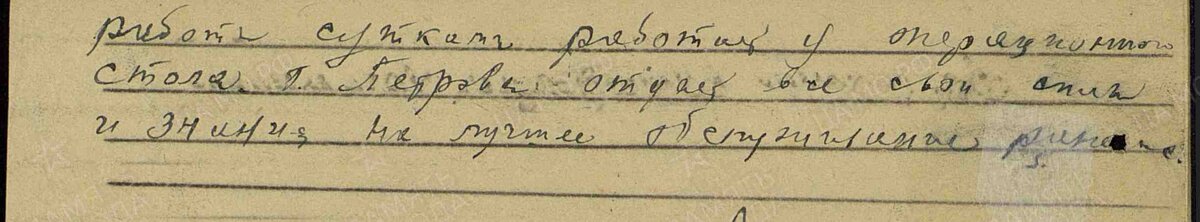 работы сутками работая у операционного
стола т. Петрова отдает все свои силы
и знания на лучшее обслуживание раненых.